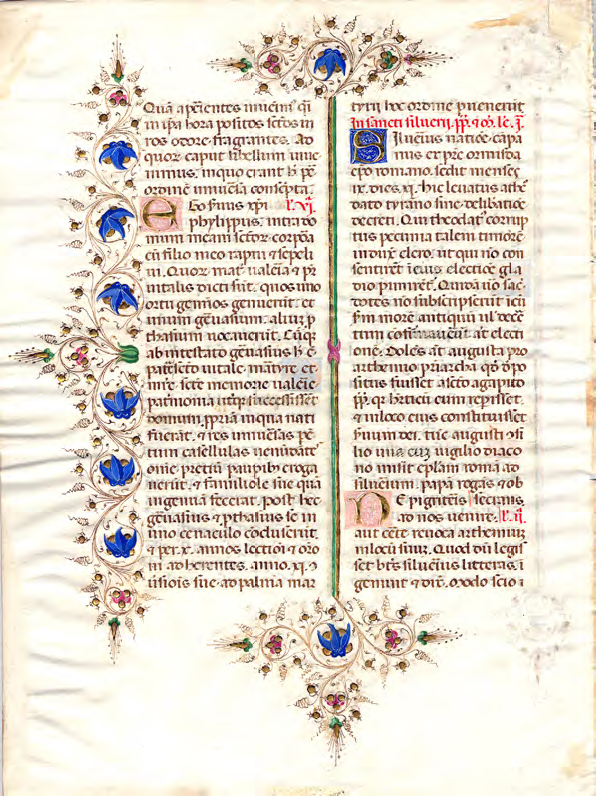 Quā apientes inuenīt qi
in ipa hora positos sctos in
ros odore fragrantes. Ad
quoȝ caput libellum inue
nimus. in quo erant h̄ p̄
ordinē inuēcīa conscpta.
Ego s̄uus xp̄i l. vi.
phylippus. intra do
mum meam sctoȝ corpora
cū filio meo rapui ⁊ sepeli
ui. Quoȝ mat̄ ualeīa ⁊ pr̄
uitalis dicti sūt. quos uno
ortu gemīos genuerūt. et
unum geruasium. aliuȝ p
thasium uocauerūt. Cūqȝ
ab intestato geruasius h̄ ē
pat̄ scto uitale mātyre. et
mr̄e scte memorie ualeīe
patrimonia successisset
domum. pp̄riā in qua nati
fuerāt. ⁊ res uniuersas pē
tum casellulas uenūdātes
omē pretiū paupibȝ eroga
uerūt. ⁊ familiole sue quā
ingenuā fecerāt. post hec
geruasius ⁊ pthasius se in
uno cenaculo coduserūt.
⁊ per x. annos lectiōi ⁊ oro
ni adherentes. anno. xi. ɔ
uersiōis sue. ad palmā mar
tyrij hoc ordine puenerūt
In sancti siluerij. pp̄. ⁊ m̄. lc̄. j̄.
Siluerius natiōe capa
nus ex pr̄e ormisda
ep̄o romano. sedit menses
ix. dies. xi. hic leuatus a the
dato tyrāno sine delibatiōe
decreti. Qui theodat̄ corrup
tus pecunia talem timorē
induxit clero. ut qui nō con
sentiret ī eius electiōe gla
dio puniret̄. Quidā uō sac̄
dotes nō subscripserūt ī eū
s̄m morē antiquū ul̄ decē
tium cofirmauerūt añ electi
onē. Doles āt augusta pro
arthemio pr̄iarcha qd̄ dpo
situs fuisset a scto agapito
pp̄. qȝ hr̄eticū eum repisset.
⁊ in loco eius constituisset
s̄uum dei. tūc augusti ɔsi
lio una cuȝ uigilio diaco
no misit ep̄lam romā ad
siluerium. papā rogās ⁊ ob
Ne pigriteris s̄ecrans.
ad nos uenire. l. ii.
aut certe reuoca arthemiuȝ
in locū suuȝ. Quod dū legis
set bt̄s siluerius litteras. ī
gemuit ⁊ dix̄. modo scio ī